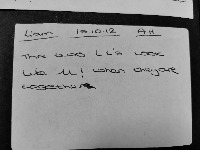 Liam 10.10.12 A.H
The two L L's look
like U! when they are
together